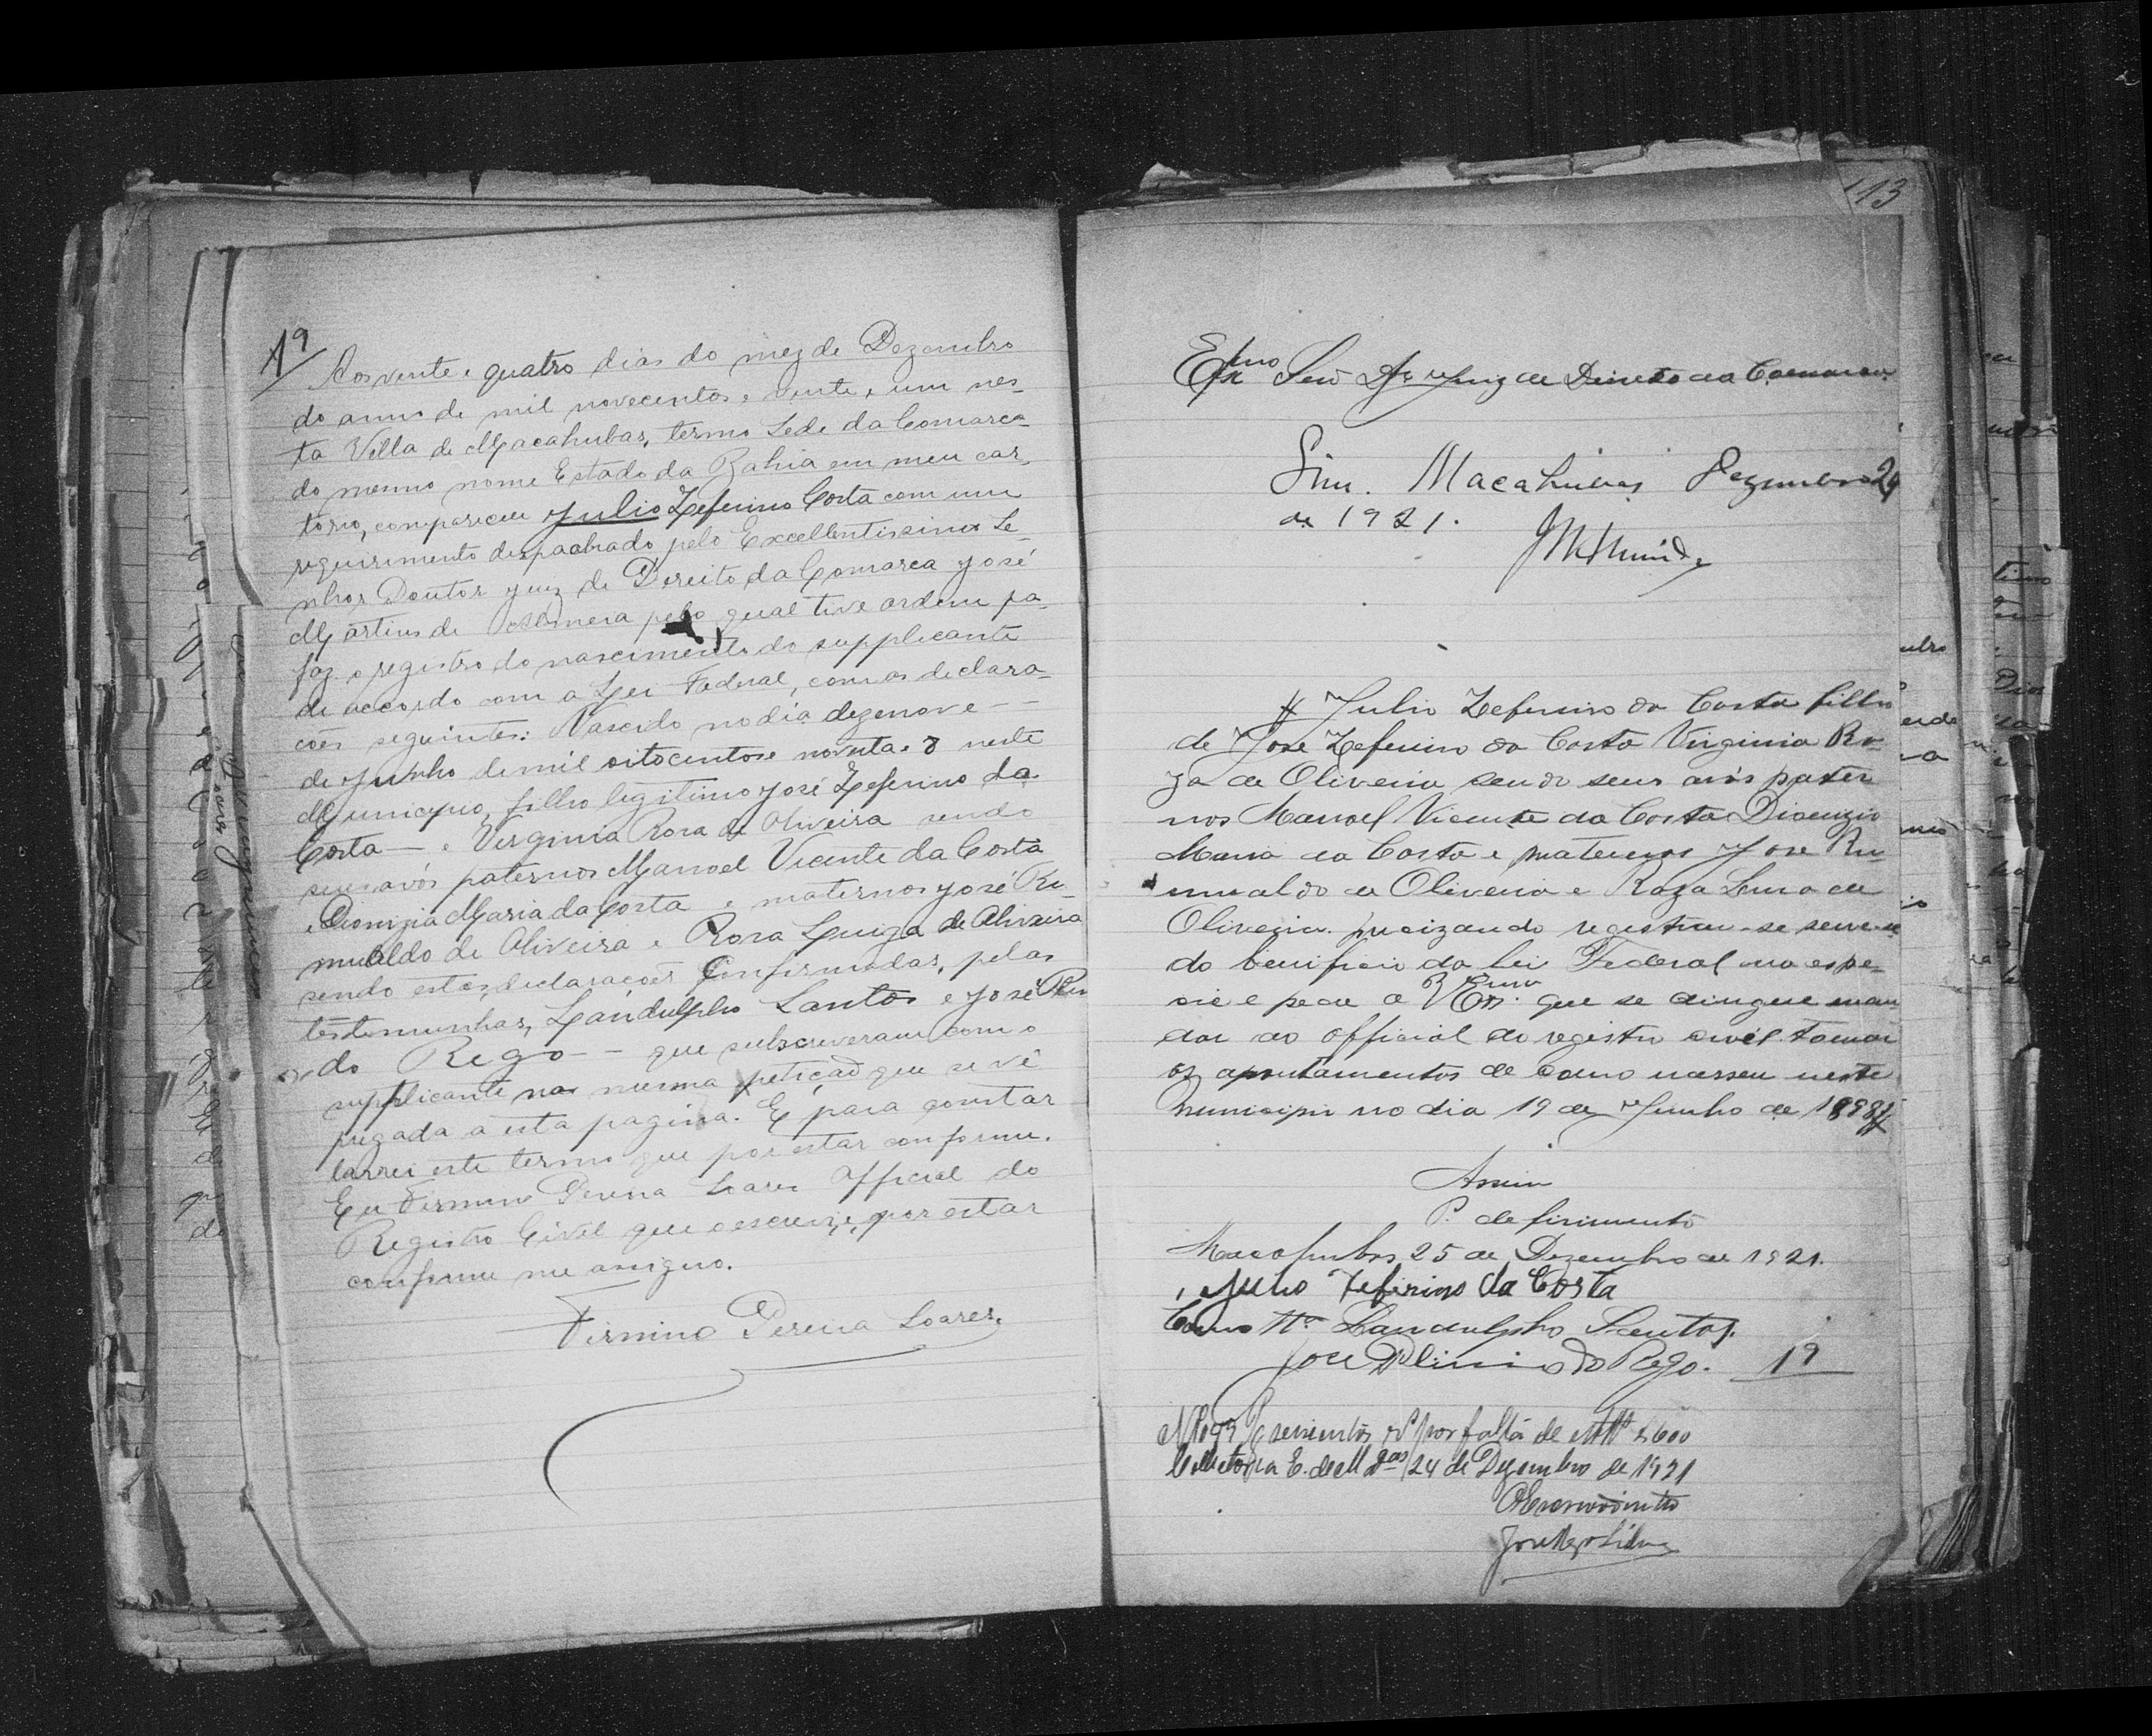 19
Aos vente e quatro dias do mez de Dezembro
do anno de mil novecentos e vente e um nes-
ta Villa de Macahubas, termo Sede da Comarca
do mesmo nome Estado da Bahia em meu car-
torio, compareceu Julio Zeferino Costa com um
requerimento despachado pelo Excellentissimo Se-
nhor Doutor Juiz de Direito da Comarca José
Martins de Almeia pelo qual tive ordem pa-
faz. o registro do nascimento do supplicante
de accordo com a Lei Federal, com as declara-
ções seguintes: Nascido no dia dezenove - -
de Junho de mil oitocentos e noventa e 8 neste
Municipio, filho legitimo José Zeferino da
Costa - e Virginia Rosa de Oliveira sendo
seus avós paternos Manoel Vicente da Costa
e Dionizia Maria da Costa e maternos José Ru-
mualdo de Oliveira e Rosa Luiza de Oliveira
sendo estas declarações Confirmadas, pelas
testemunhas, Landulpho Santos e José Plin
do Rego - - que subscreveram com o
supplicante na mesma petição que se vê
pregada a esta pagina. E para constar
larrei este termo que por estar conforme.
Eu Firmino Pereira Soares Official do
Registro Civil que o escrevi, e por estar
conforme me assigno.
Firmino Pereira Soares.
113
Exmo Senr Dr Juiz de Direito da Comarca
Sim. Macahubas Dezembro 24
de 1921.
Julio Zeferino da Costa filho
de José Zeferino da Costa Virginia Ro-
za de Oliveira sendo seus avós pater
nos Manoel Vicente da Costa Dionizio
Maria da Costa e maternos Jose Ru
mualdo de Oliveira e Roza Luiza de
Oliveira. precizando registrar-se serve-se
do beneficio da Lei Federal na espe-
cie e pede a V Exma. que se dingue man
dar ao official do registro civil tomar
os apontamentos de como nasseu neste
Municipio no dia 19 de Junho de 1898
Assim
P. deferimento
Macahubas 25 de Dezembro de 1921.
Julio Zeferino da Costa
Como Ta Landulpho Santos.
Jose Plinio do Rego. 19
por falta de 600
Collectoria E. de M 24 de Dezembro de 1921